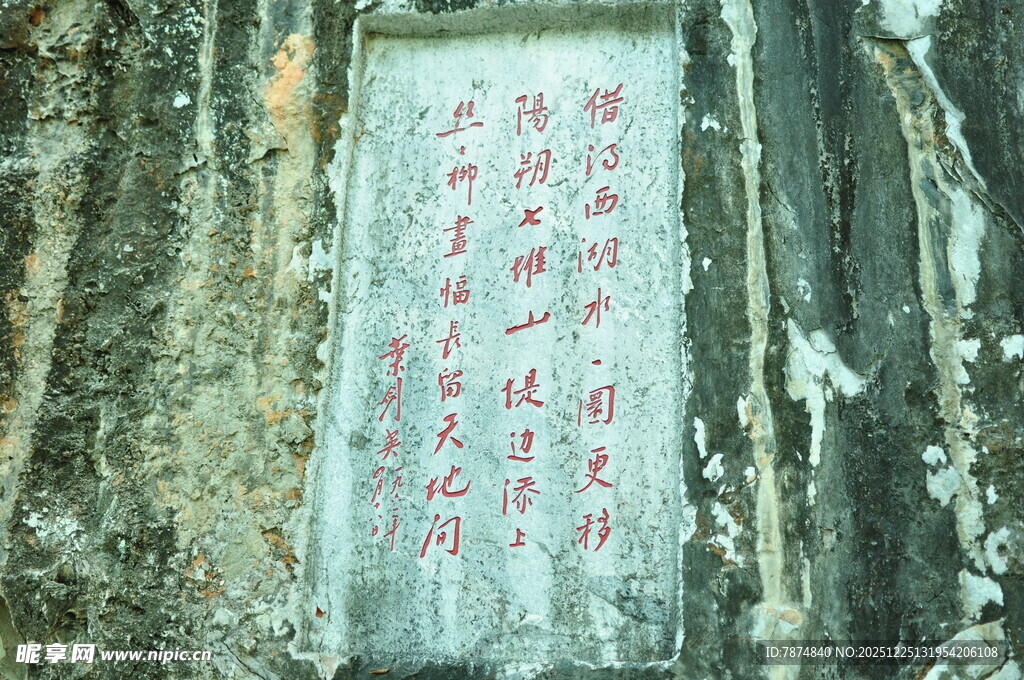 借得西湖水一圜更移
陽朔七堆山堤边添上
丝〻柳畫幅長留天地间
葉剑英一九六二年
昵享网 www.nipic.cn
ID:7874840 NO:20251225131954206108